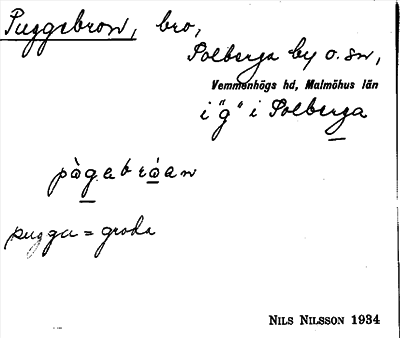 Puggebron, bro,
Solberga by o. sn,
Vemmenhögs hd, Malmöhus län
i "g" i Solberga
pàgabråan
pugga = groda
NILS NILSSON 1934